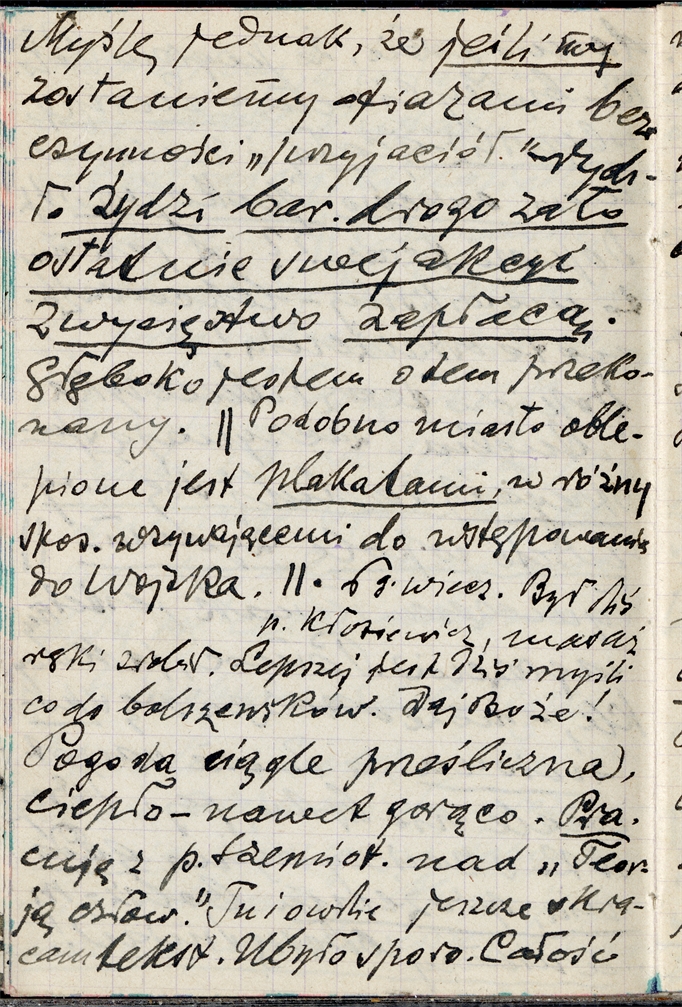 Myślę jednak, że jeśli my
zostaniemy ofiarami bez
czynności „przyjaciół."
to Żydzi bar. drogo za to
ostatnie swej akcyi
zwycięstwo zapłacą.
Głęboko jestem o tem przeko-
nany. || Podobno miasto oble-
pione jest plakatami, w różny
spos. wzywającemi do wstępowania
do wojska. ||. 5 g. wiecz. Był dziś
p. Kłosiewicz, masaż
ręki zrobił. Lepszej jest dziś myśli
co do bolszewików. Daj Boże!
Pogoda ciągle prześliczna,
ciepło – nawet gorąco. Pra-
cuję z p. Szemiot. nad „Teor-
ją człow." Tu i owdzie jeszcze skra-
cam tekst. Ubyło sporo. Całość